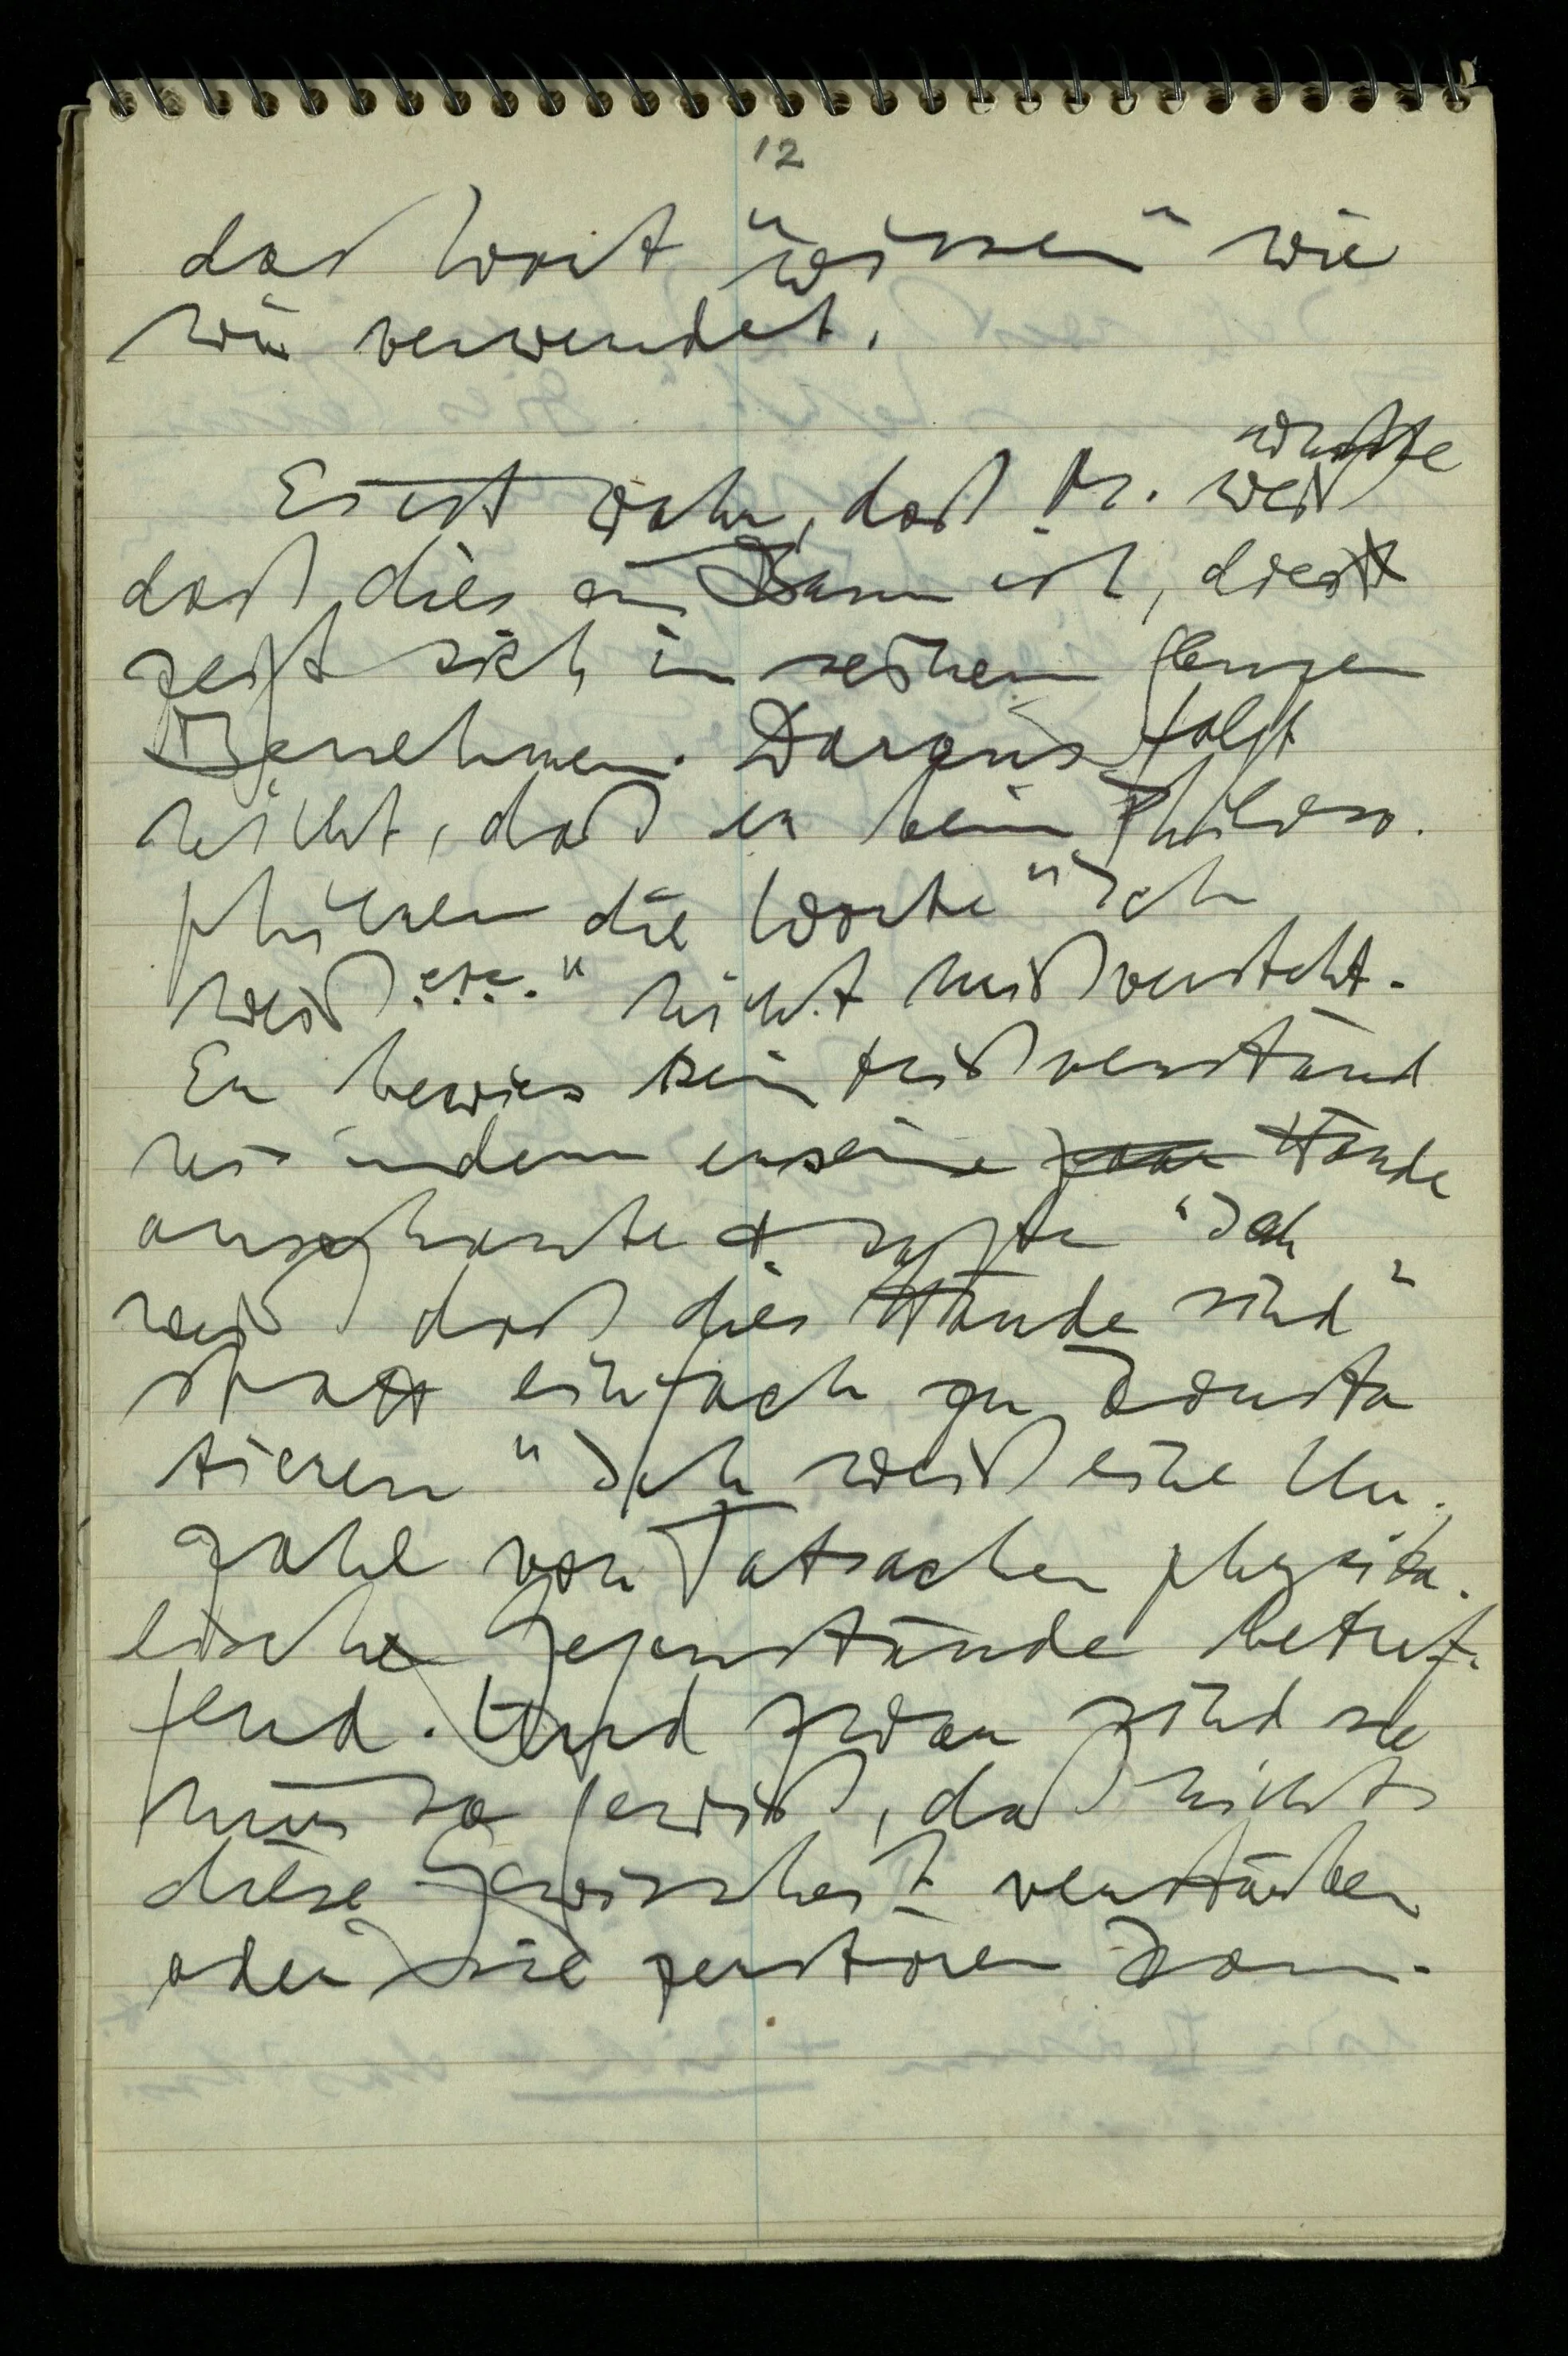 12
das Wort "wissen" wie
wir verwendet.
wußte
Es ist wahr, daß M. weiß
daß dies ein Baum ist, dies
zeigt sich in seinem ganzen
Benehmen. Daraus folgt
nicht, daß er beim Philoso-
phieren die Worte "Ich
weiß etc." nicht mißversteht.
Er bewies sein Mißverständ
nis indem er seine Hände
anschaute & sagte "Ich
weiß daß dies Hände sind"
statt einfach zu konsta
tieren "Ich weiß eine Un-
zahl von Tatsachen physika-
lische Gegenstände betref-
fend. Und zwar sind sie
mir so gewiß, daß nichts
diese Gewissheit verstärken
oder sie zerstören kann.